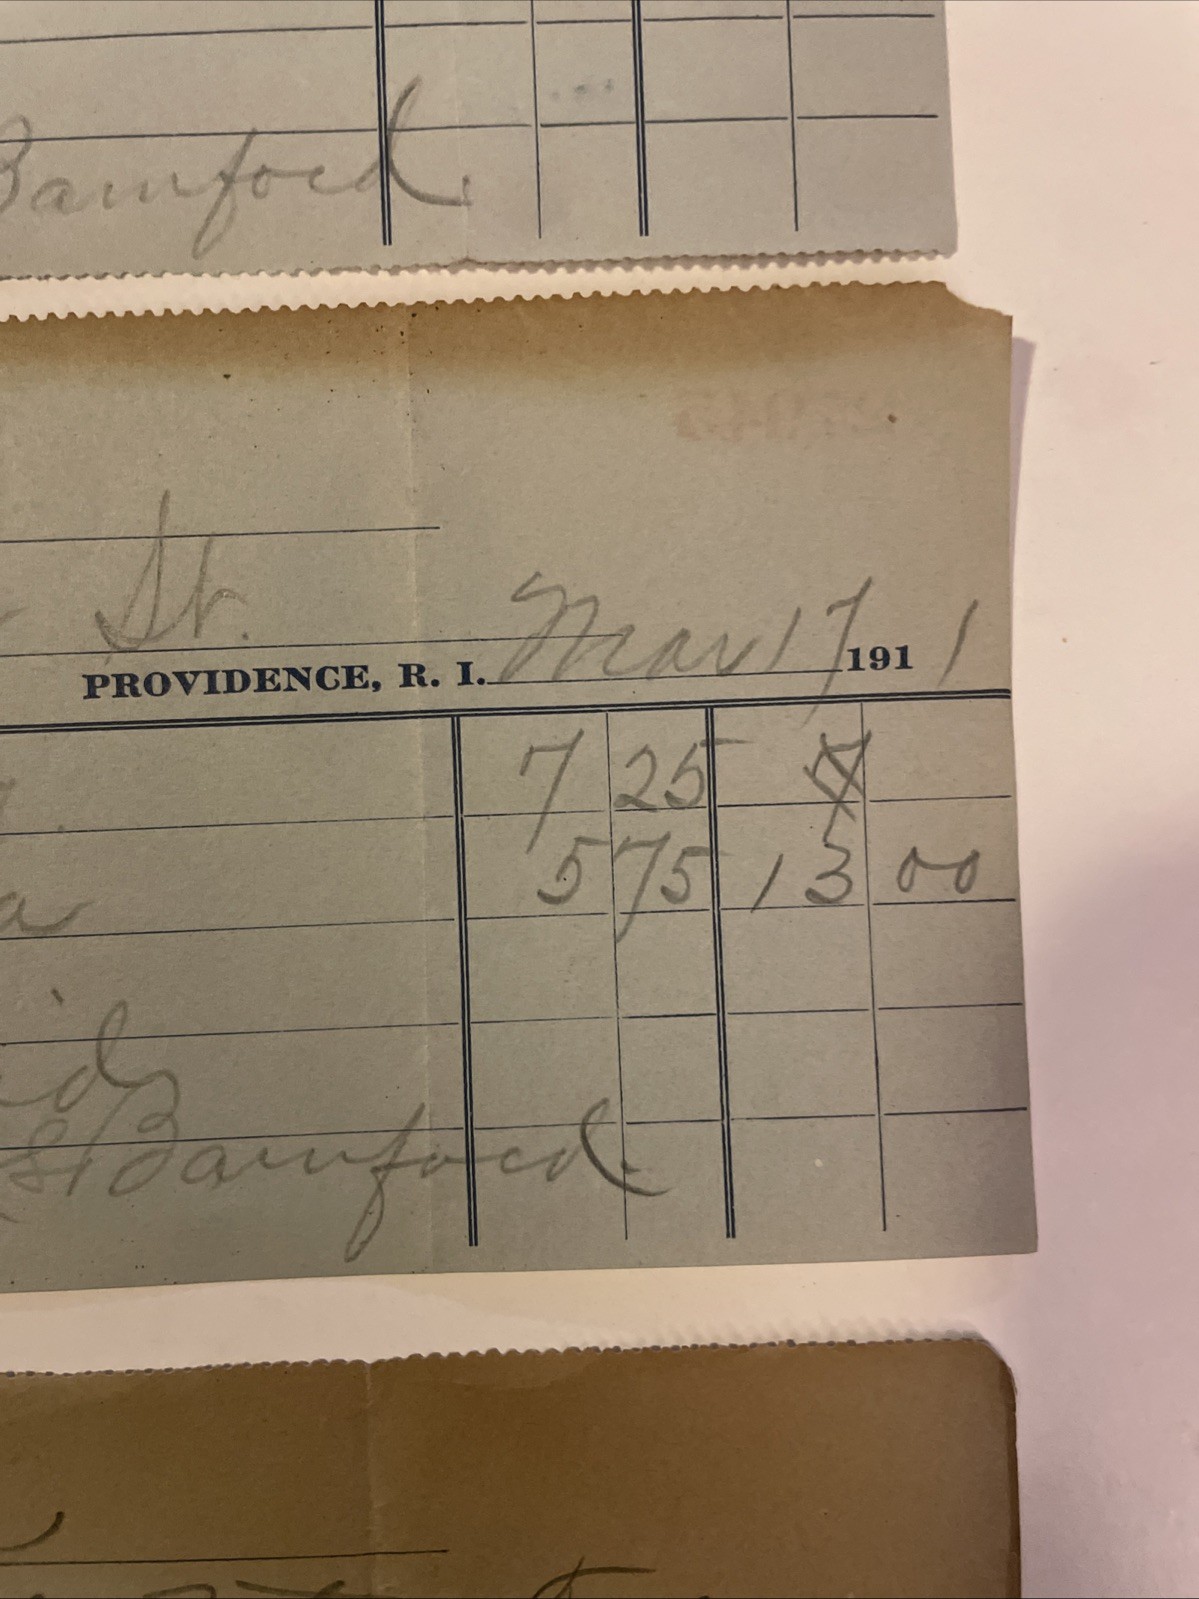 Bamford.
St.
PROVIDENCE, R. I. Mar 17 1911
7 25 7
a 5 75 13 00
S Bamford.